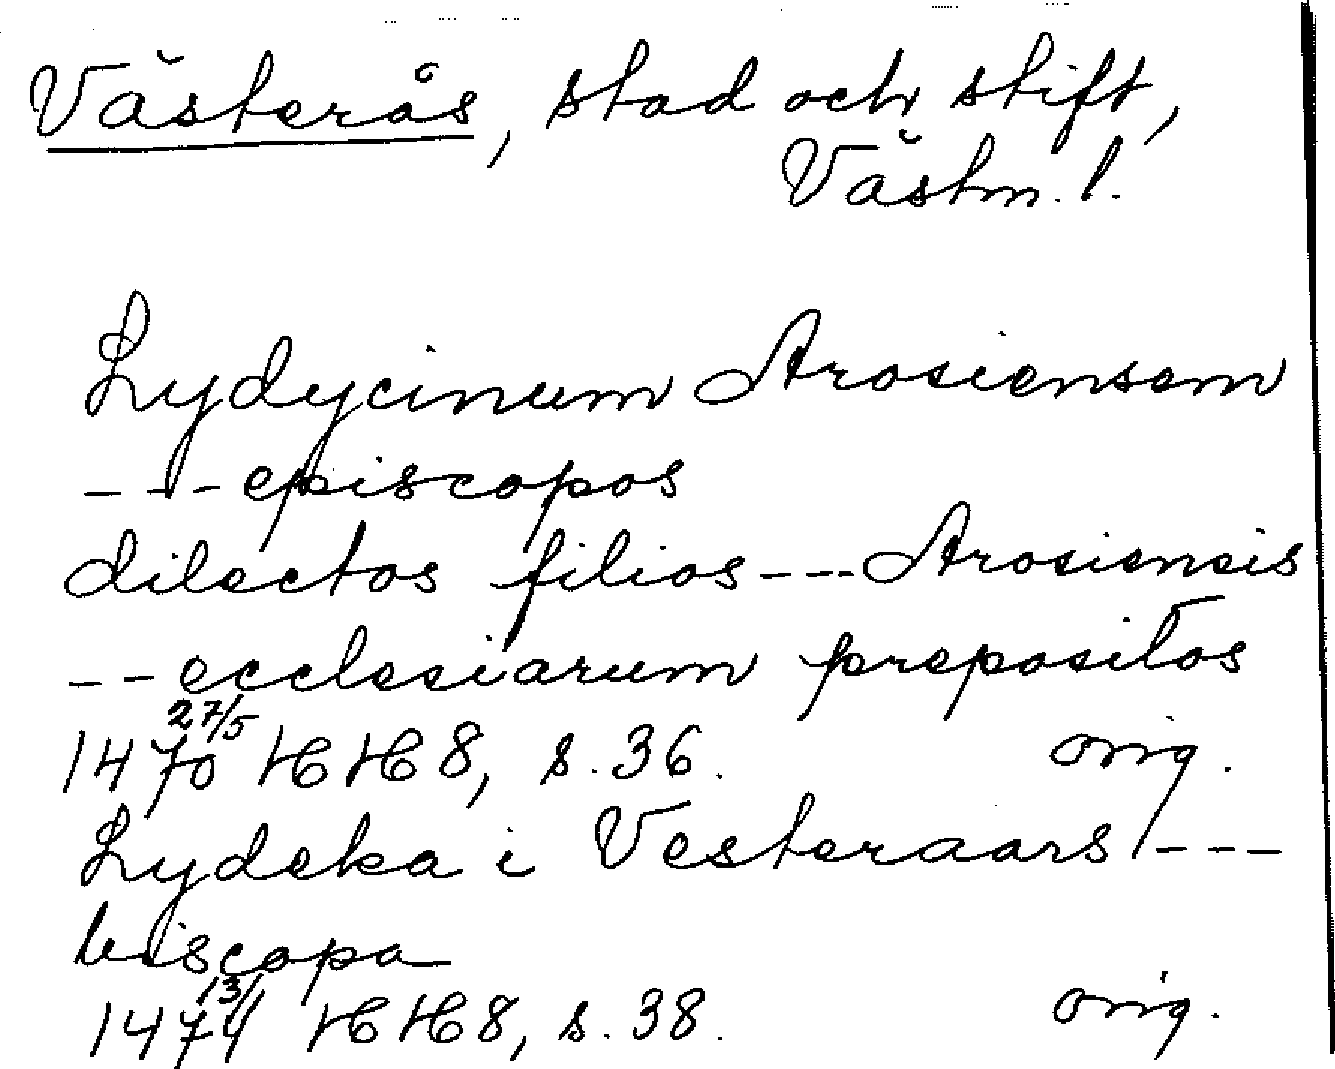 Västerås, stad och stift,
Västm. l.
Lydycinum Arosiensem
--- episcopos
dilectos filios --- Arosiensis
-- ecclesiarum prepositos
27/5
1470 HH 8, s. 36. orig.
Lydeka i Vesteraars ---
biscopa
1474 HH 8, s. 38. orig.